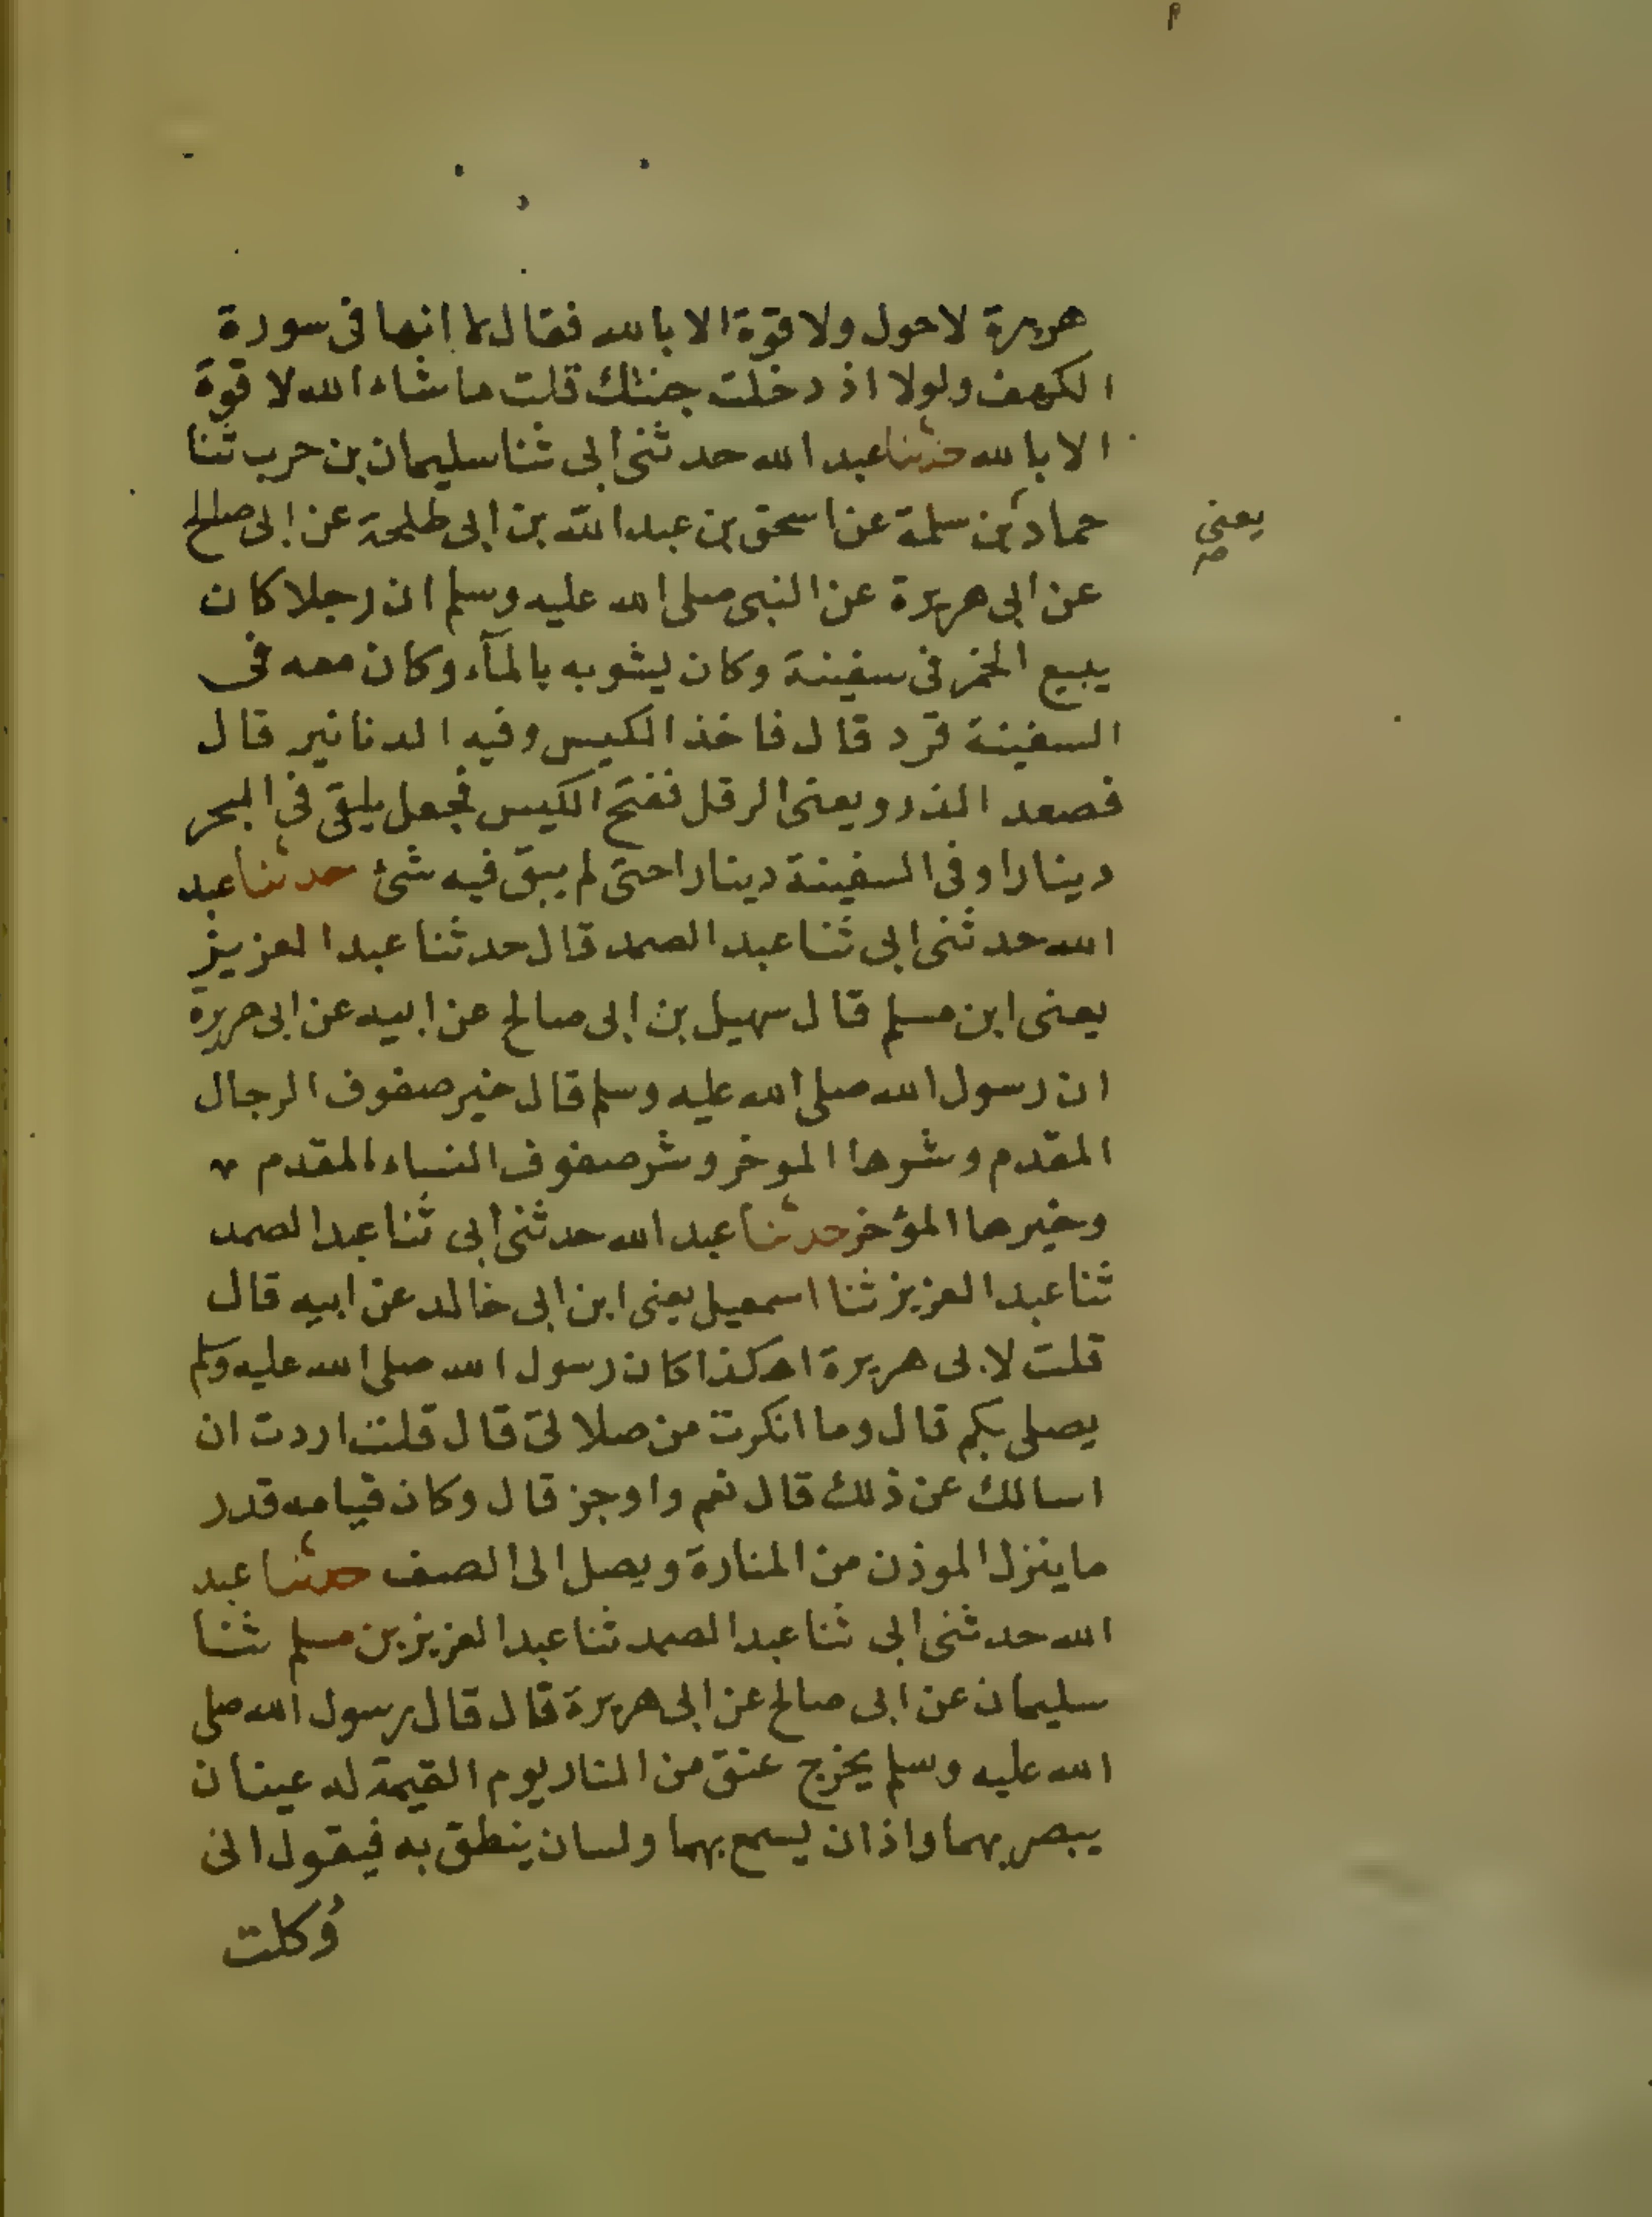 هريرة لاحول ولا قوة الا بالله فقال لا انها فى سورة
الكهف ولولا اذ دخلت جنتك قلت ماشاء الله لا قوة
الا بالله حدثنا عبد الله حدثنى ابى ثنا سليمان بن حرب ثنا
حماد بن سلمة عن اسحق بن عبد الله بن ابى طلحة عن ابى صالح
يعنى
صح
عن ابى هريرة عن النبى صلى الله عليه وسلم ان رجلا كان
يبيع الخمر فى سفينة وكان يشوبه بالمآء وكان معه فى
السفينة قرد قال فاخذ الكيس وفيه الدنانير قال
فصعد الذرو يعنى الرقل ففتح الكيس فجعل يلقى فى البحر
دينارا وفى السفينة دينارا حتى لم يبق فيه شئ حدثنا عبد
الله حدثنى ابى ثنا عبد الصمد قال حدثنا عبد العزيز
يعنى ابن مسلم قال سهيل بن ابى صالح عن ابيه عن ابى هريرة
ان رسول الله صلى الله عليه وسلم قال خير صفوف الرجال
المقدم وشرها الموخر وشر صفوف النساء المقدم
وخيرها المؤخر حدثنا عبد الله حدثنى ابى ثنا عبد الصمد
ثنا عبد العزيز ثنا اسمعيل يعنى ابن ابى خالد عن ابيه قال
قلت لابى هريرة اهكذا كان رسول الله صلى الله عليه وسلم
يصلى بكم قال وما انكرت من صلاتى قال قلت اردت ان
اسالك عن ذلك قال نعم واوجز قال وكان قيامه قدر
ما ينزل الموذن من المنارة ويصل الى الصف حدثنا عبد
الله حدثنى ابى ثنا عبد الصمد ثنا عبد العزيز بن مسلم ثنا
سليمان عن ابى صالح عن ابى هريرة قال قال رسول الله صلى
الله عليه وسلم يخرج عنق من النار يوم القيمة له عينان
يبصر بهما واذان يسمع بهما ولسان ينطق به فيقول انى
وُكلت